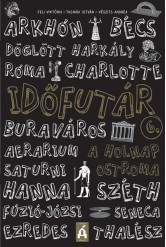 FELD VIKTÓRIA · TASNÁDI ISTVÁN · VÉSZITS ANDREA
ARKHÓN BÉCS
DÖGLÖTT HARKÁLY
RÓMA CHARLOTTE
IDŐFUTÁR
6
BURAVÁROS
AERARIUM A HOLNAP
SATURNI OSTROMA
HANNA SZÉTH
FÚZIÓ-JÓZSI SENECA
EZREDES THALÉSZ